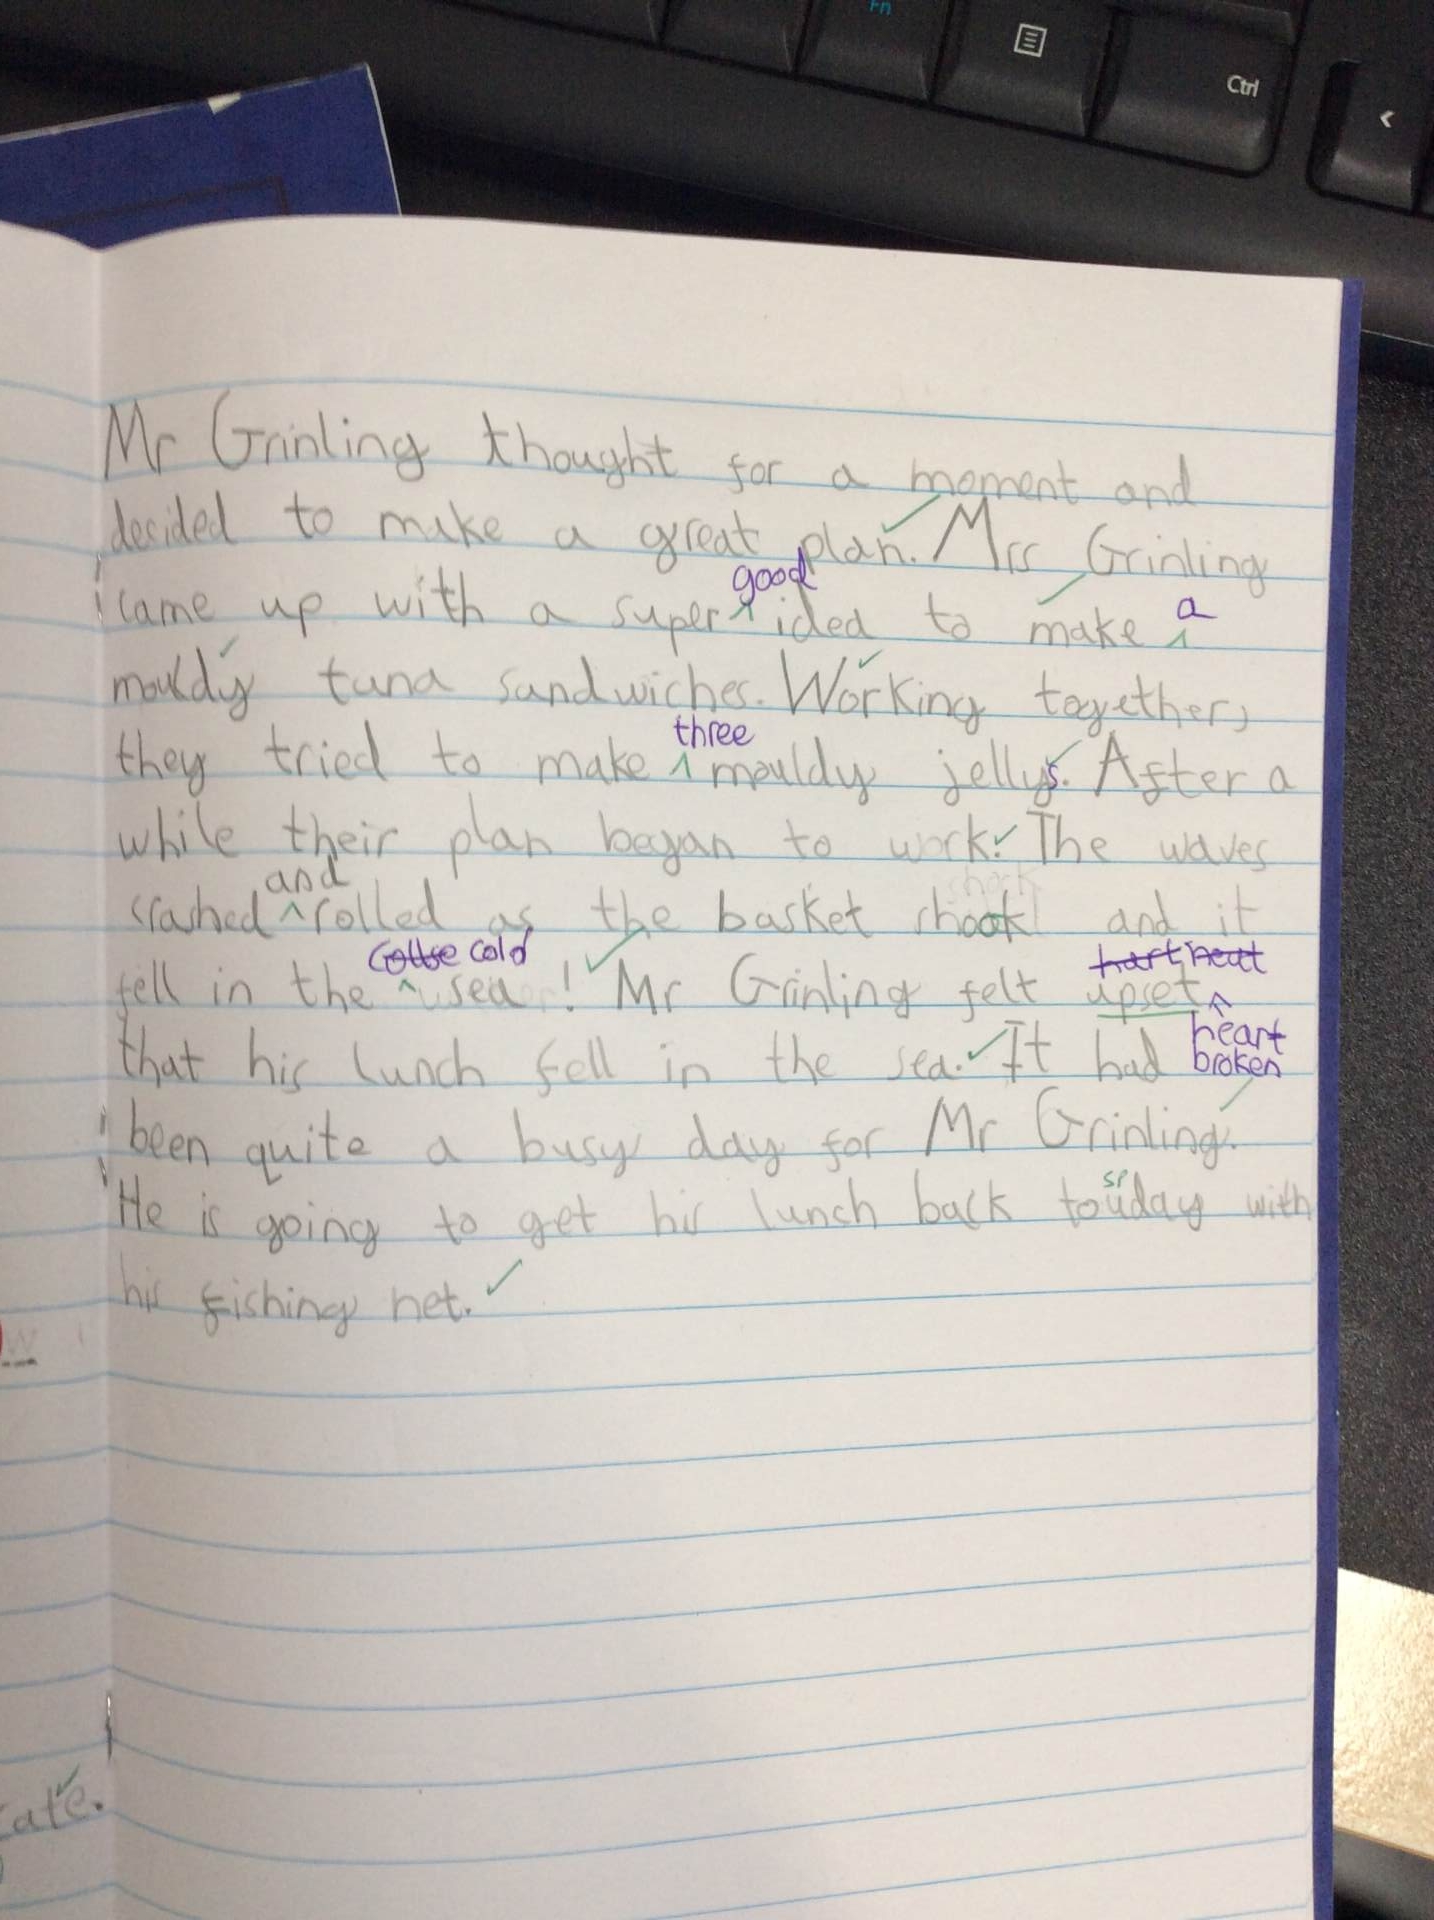 Fn
Ctrl
Mr Grinling thought for a moment and
decided to make a great plan. Mrs Grinling
good
a
came up with a super idea to make
mouldy tuna sandwiches. Working together,
three
they tried to make mouldy jellys. After a
while their plan began to work. The waves
and
crashed rolled as the basket shook and it
cold
fell in the sea! Mr Grinling felt upset
heart
that his lunch fell in the sea. It had broken
been quite a busy day for Mr Grinling.
sp
He is going to get his lunch back touday with
his fishing net.